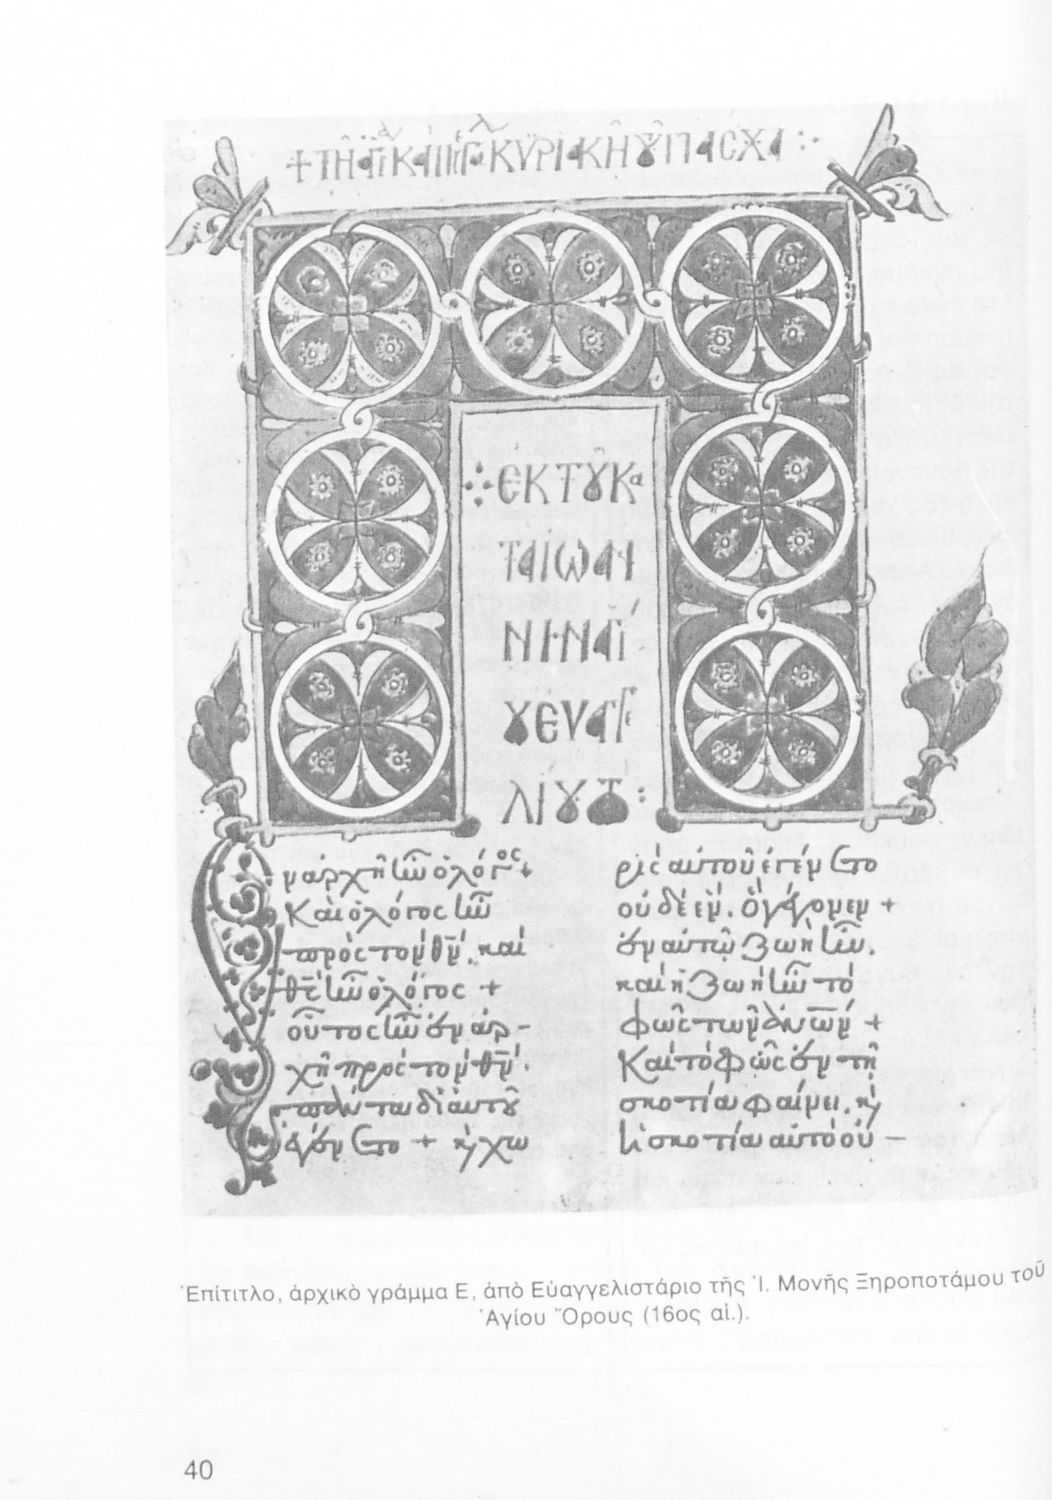 + ΤΗ ΑΓΙ ΚΑΙ ΜΕΓΑΛ ΚΥΡΙΑΚΗ ΤΟΥ ΠΑΣΧΑ
ΕΚ ΤΟΥ ΚΑ
ΤΑ ΙΩΑΝ
ΝΗΝ ΑΓΙ
ΟΥ ΕΥΑΓΓΕ
ΛΙΟΥ
Ἐν ἀρχῆ ἦν ὁ λόγος +
Καὶ ὁ λόγος ἦν
πρὸς τὸν θν̄. καὶ
θς̄ ἦν ὁ λόγος +
οὗτος ἦν ἐν ἀρ-
χῆ πρὸς τὸν θν̄.
πάντα δι αὐτοῦ
ἐγένετο + κὶ χω
ρὶς αὐτοῦ ἐγένετο
οὐδὲ ἕν. ὃ γέγονεν +
ἐν αὐτῶ ζωὴ ἦν.
καὶ ἡ ζωὴ ἦν τὸ
φῶς τῶν ἀνων̄ +
Καὶ τὸ φῶς ἐν τῆ
σκοτία φαίνει. κὶ
ἡ σκοτία αὐτὸ οὐ –
Ἐπίτιτλο, ἀρχικὸ γράμμα Ε, ἀπὸ Εὐαγγελιστάριο τῆς Ἱ. Μονῆς Ξηροποτάμου τοῦ
Ἁγίου Ὄρους (16ος αἰ.).
40